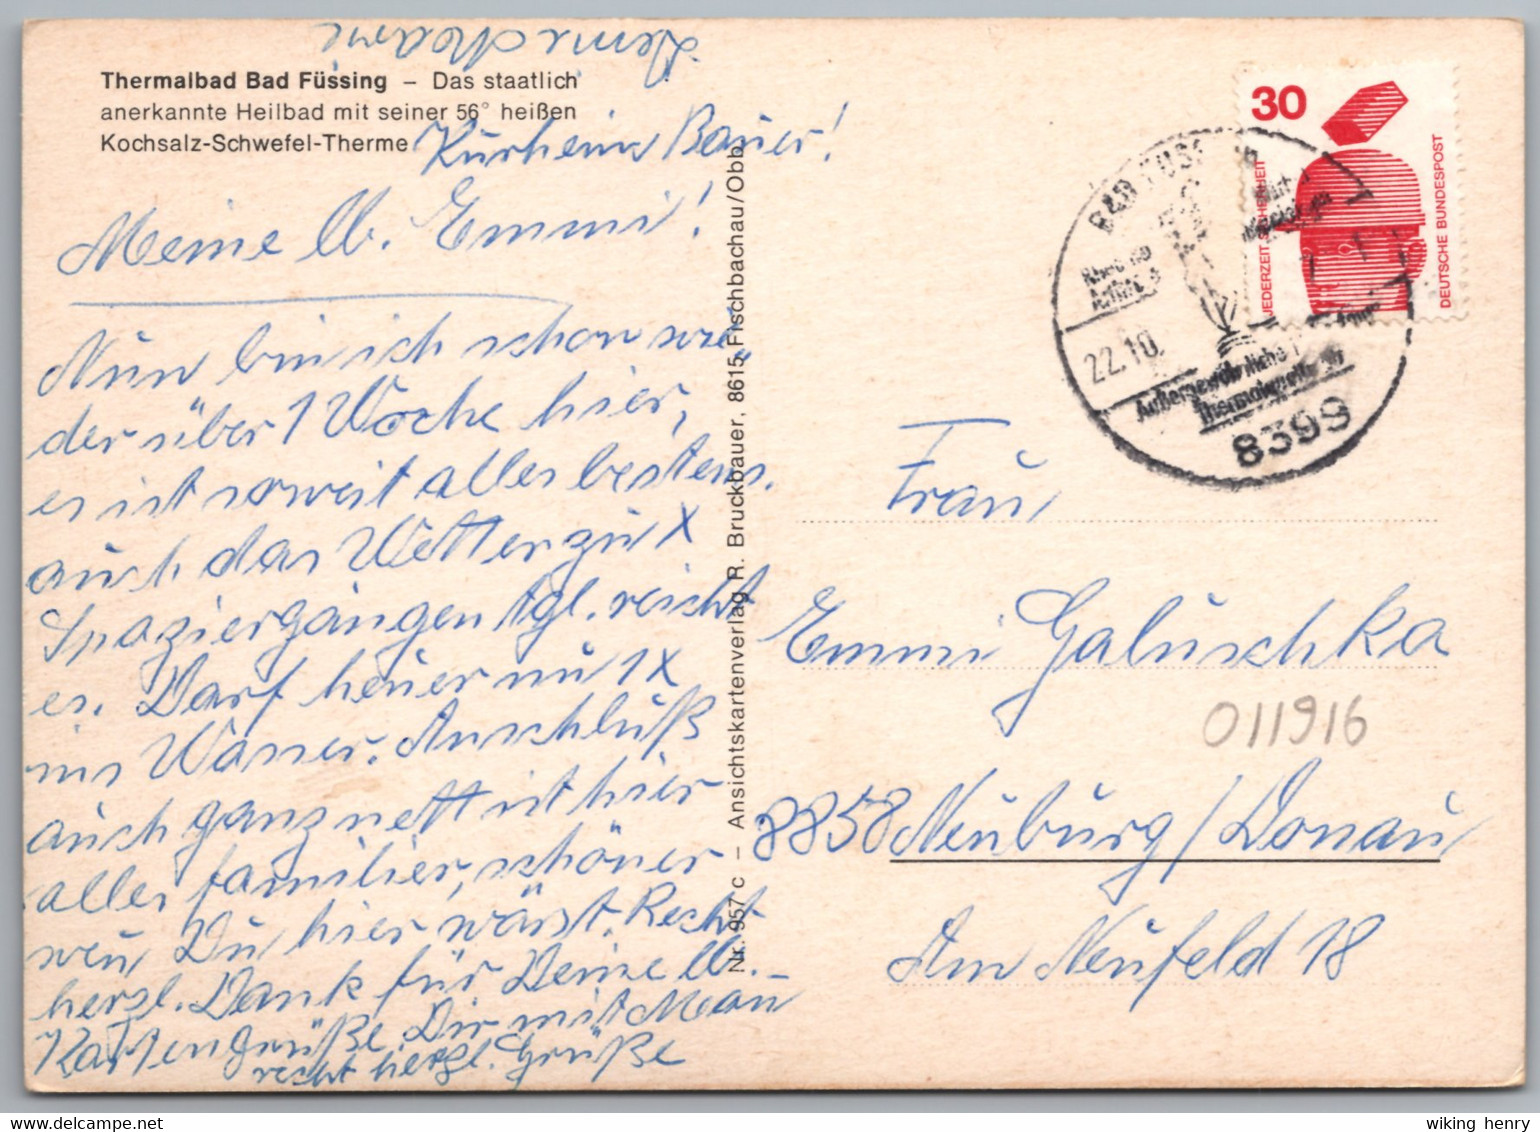 Deine
Thermalbad Bad Füssing – Das staatlich
anerkannte Heilbad mit seiner 56° heißen
Kochsalz-Schwefel-Therme
Kurheim Bauer!
Meine lb. Emmi!
Nun bin ich schon wie-
der über 1 Woche hier,
es ist soweit alles bestens.
auch das Wetter zu X
Spaziergängen tgl. reicht
es. Darf heuer nur 1x
ins Wasser. Anschluß
auch ganz nett ist hier
alles familier, schöner
wen Du hier wärst. Recht
herzl. Dank für Deine lb.
Kartengrüße. Dir mit Mann
recht herzl. Grüße
Nr. 957 C – Ansichtskartenverlag R. Bruckbauer, 8615 Fischbachau/Obb.
30
JEDERZEIT SICHERHEIT
DEUTSCHE BUNDESPOST
BAD FÜSSING
22.10.
Außergewöhnliche
Thermalquelle
8399
Frau
Emmi Galuschka
011916
8858 Neuburg/Donau
Am Neufeld 18
wiking henry